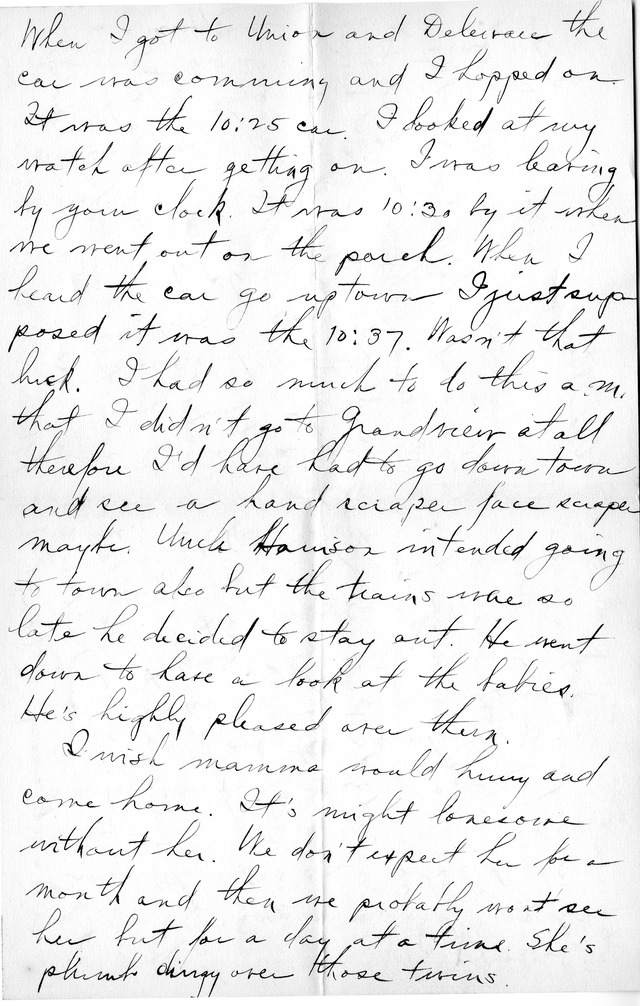 When I got to Union and Delaware the
car was comming and I hopped on.
It was the 10:25 car. I looked at my
watch after getting on. I was leaving
by your clock. It was 10:30 by it when
we went out on the porch. When I
heard the car go uptown I just sup
posed it was the 10:37. Wasn't that
luck. I had so much to do this a.m.
that I didn't go to Grandview at all
therefore I'd have had to go down town
and see a hand scraper face scraper
maybe. Uncle Harrison intended going
to town also but the trains were so
late he decided to stay out. He went
down to have a look at the babies.
He's highly pleased over them.
I wish mamma would hurry and
come home. It's might lonesome
without her. We don't expect her for a
month and then we probably won't see
her but for a day at a time. She's
plumb dingy over those twins.